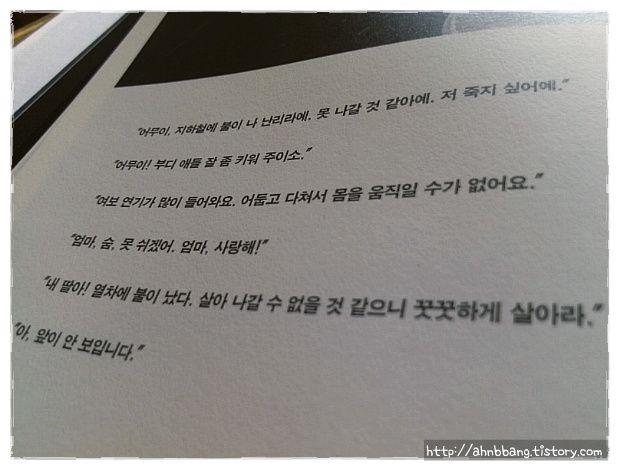 "어무이, 지하철에 불이 나 난리라예. 못 나갈 것 같아예. 저 죽지 싶어예."
"어무이! 부디 애들 잘 좀 키워 주이소."
"여보 연기가 많이 들어와요. 어둡고 다쳐서 몸을 움직일 수가 없어요."
"엄마, 숨, 못 쉬겠어. 엄마, 사랑해!"
"내 딸아! 열차에 불이 났다. 살아 나갈 수 없을 것 같으니 꿋꿋하게 살아라."
"아, 앞이 안 보입니다."
http://ahnbbang.tistory.com